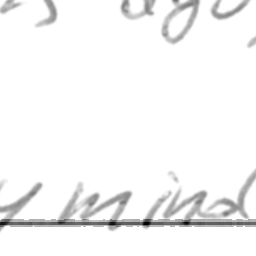 s ago,
y mind